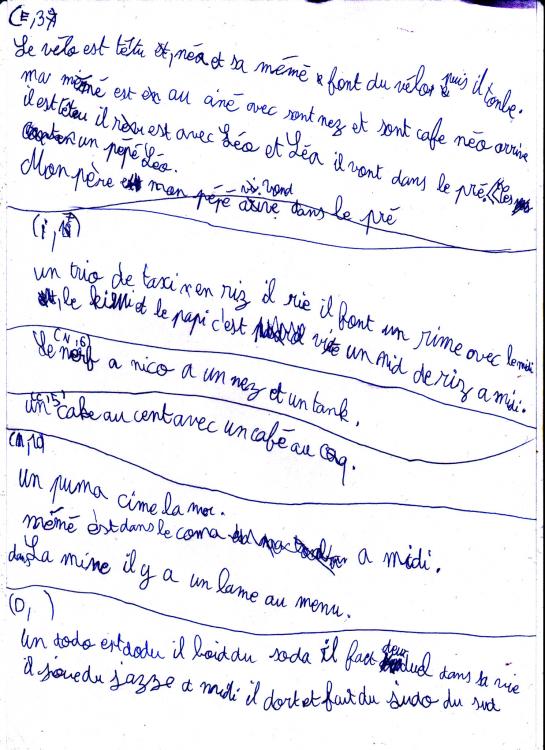 (E, 3)
Le vélo est têtu et, néo et sa mémé font du vélo puis il tombe.
ma mémé est en au ané avec sont nez et sont cafe néo arrive
il est têtu il est avec Léo et Léa il vont dans le pré.
un pepé Léo.
Mon père mon pépé arive dans le pré
vi. vond
(i, 1)
un trio de taxi en riz il rie il font un rime avec le midi
le kiwi et le papi c'est vite un nid de riz a midi.
(N, 6)
Le nerf a nico a un nez et un tank.
(C, 5)
un cake au cent avec un café au coq.
(M, 10)
un puma cime la moi.
mémé est dans le coma a midi.
dans La mine il y a un lame au menu.
(D, )
un dodo est dodu il boid du soda il fait deux duel dans sa vie
il joue du jazze a midi il dort et fait du judo du sud